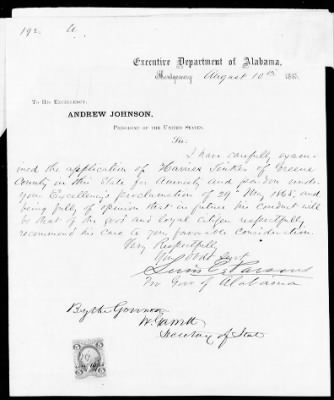 192
Executive Department of Alabama,
Montgomery August 10th 186
To His Excellency:
ANDREW JOHNSON,
President of the United States.
Sir:
I have carefully exam-
ined the application of of Greene
County in this State for Amnesty and pardon under
your Excellency's proclamation of 29th May 1865, and
being fully of opinion that in future his conduct will
be that of the good and loyal citizen respectfully
recommend his case to your favorable consideration.
Very Respectfully
Your Obdt Servt
Lewis E Parsons
Pro Gov of Alabama
By the Governor
W. Garrett
Secretary of State